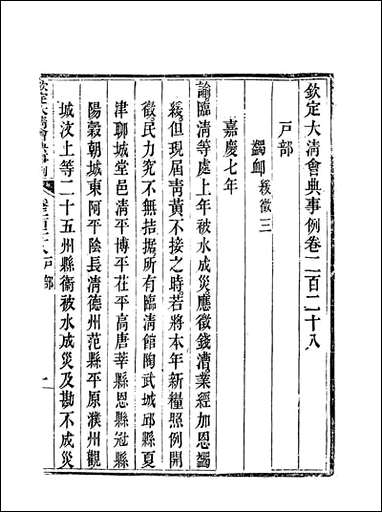 欽定大淸會典事例卷二百二十八
戶部
蠲卹 緩徵三
嘉慶七年
諭臨淸等處上年被水成災應徵錢漕業經加恩蠲
緩但現屆靑黃不接之時若將本年新糧照例開
徵民力究不無拮据所有臨淸館陶武城邱縣夏
津聊城堂邑淸平博平茌平高唐莘縣恩縣冠縣
陽穀朝城東阿平陰長淸德州范縣平原濮州觀
城汶上等二十五州縣衞被水成災及勘不成災
戶部